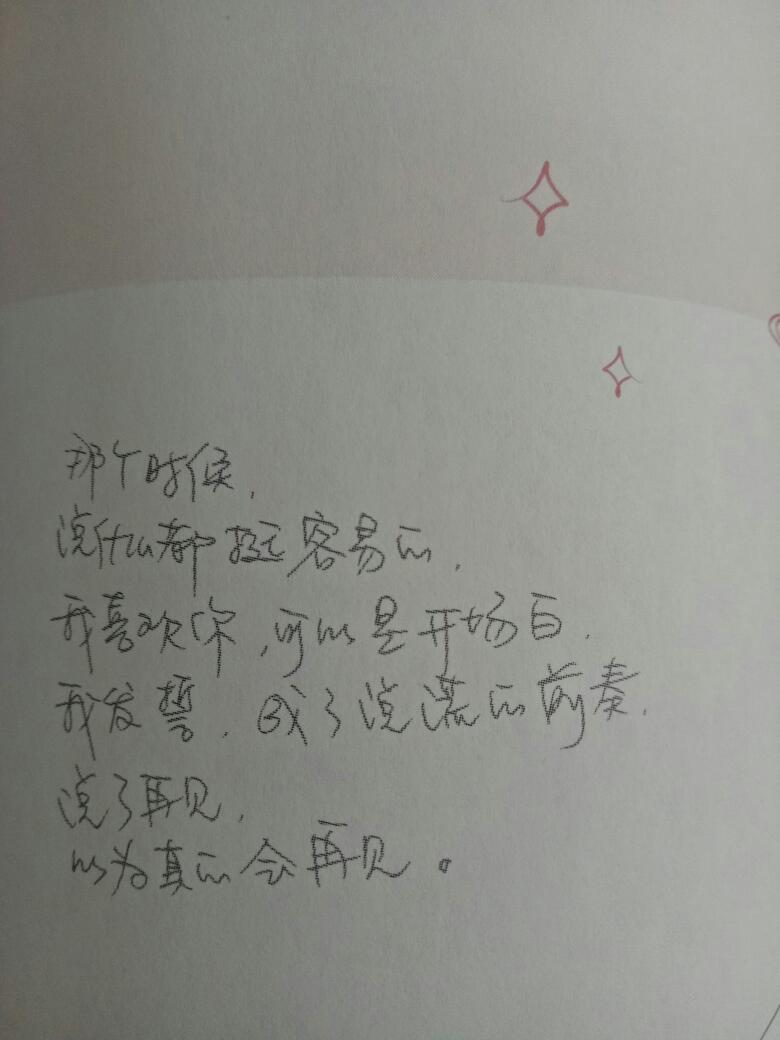 那个时候,
说什么都挺容易的.
我喜欢你,可以是开场白.
我发誓.成了说谎的前奏.
说了再见,
以为真的会再见。